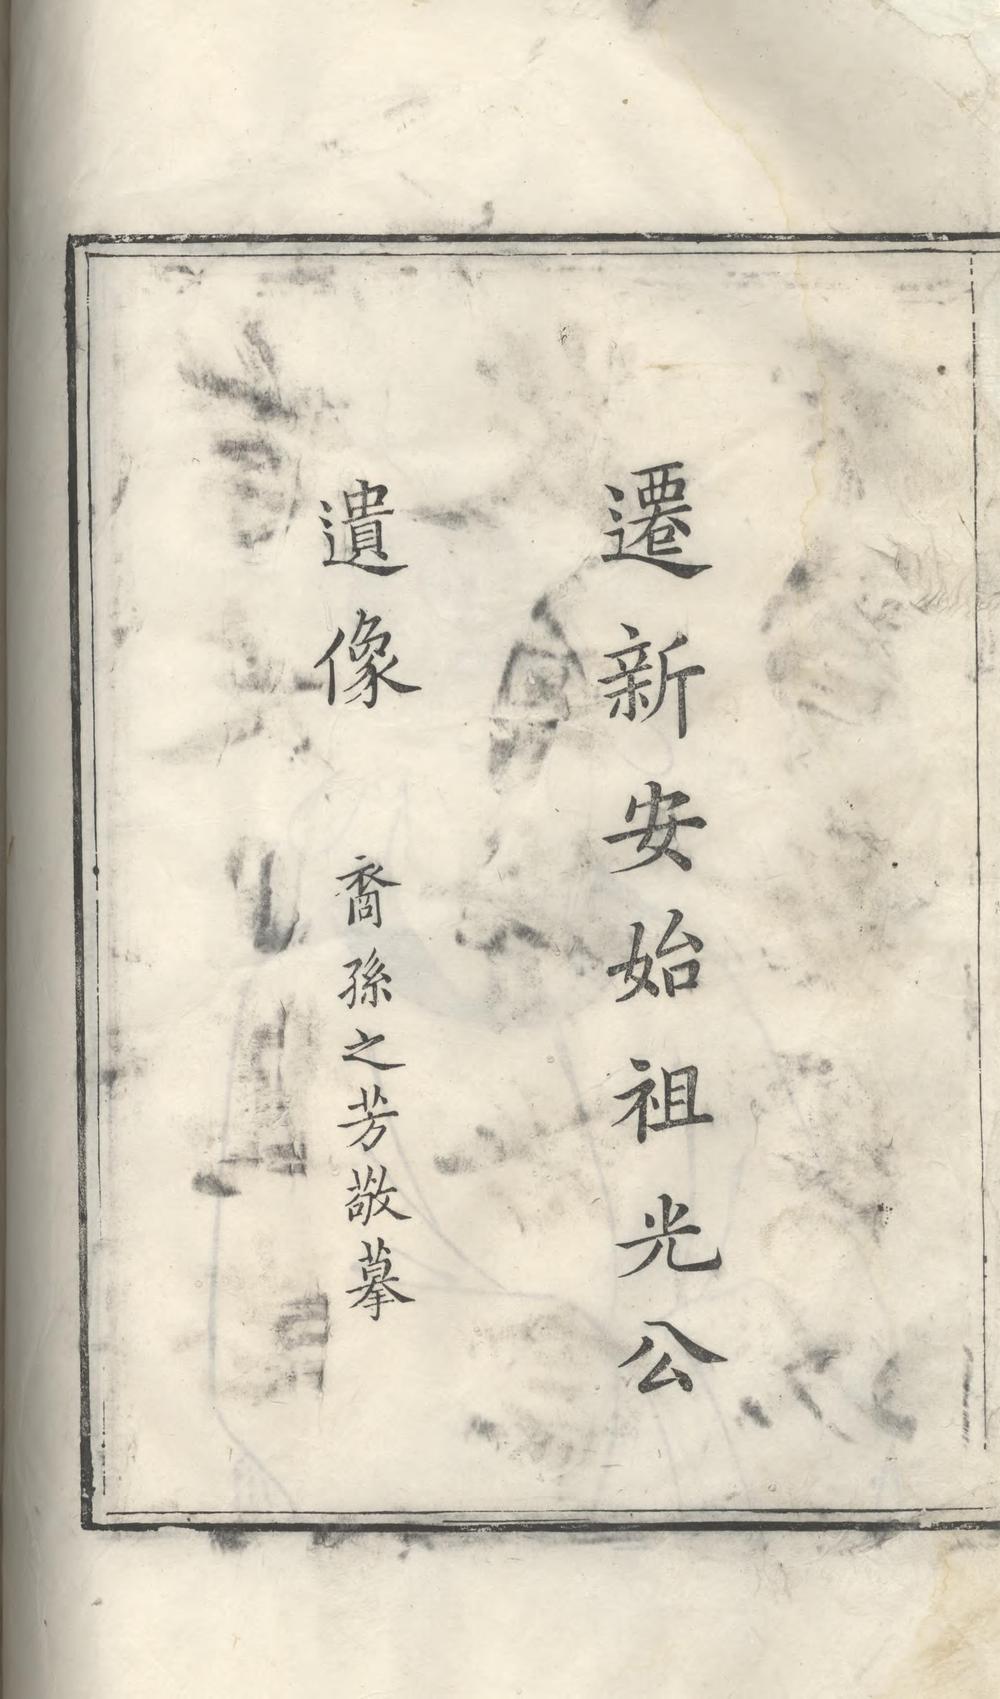 遷新安始祖光公
遺像　裔孫之芳敬摹